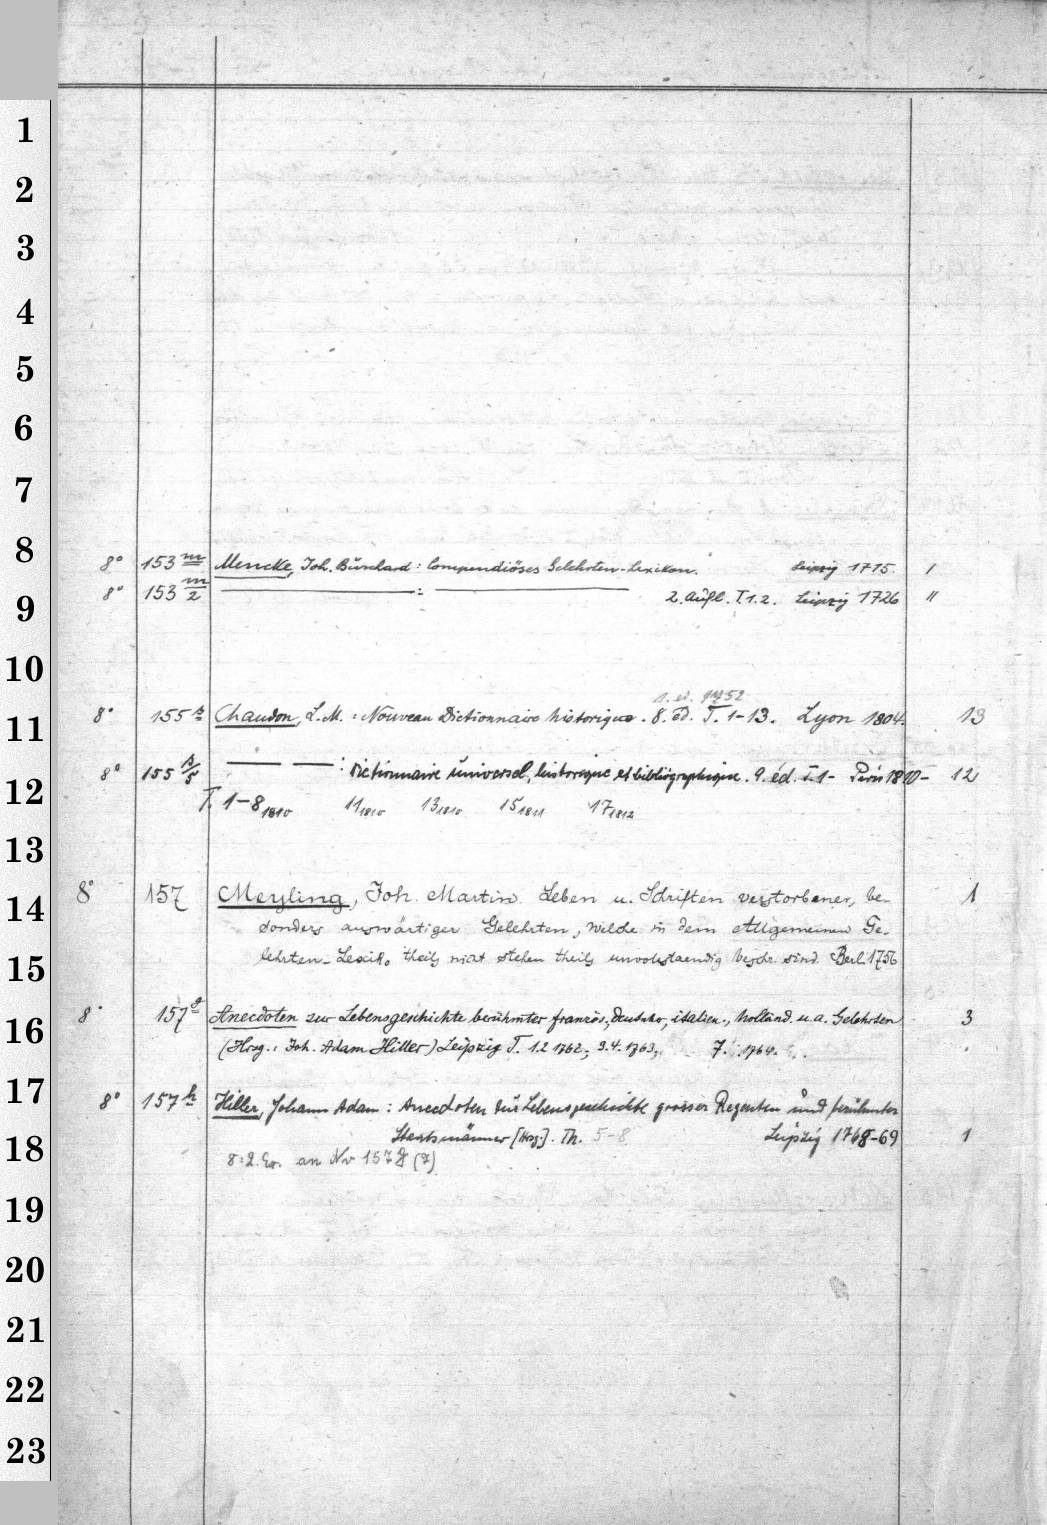 1
2
3
4
5
6
7
8
8° 153 m Mencke, Joh. Burchard: Compendiöses Gelehrten-Lexikon. Leipzig 1715. 1
8° 153 m/2 — : — 2. Aufl. T. 1.2. Leipzig 1726 11
9
10
1. ed. 1752
11
8° 155 Chaudon, L. M.: Nouveau Dictionnaire historique. 8. éd. T. 1-13. Lyon 1804. 13
8° 155 — — : Dictionnaire universel, historique et bibliographique. 9. éd. T. 1- Paris 1810- 12
12
T. 1-8 1810 11 1810 13 1810 15 1811 17 1812
13
14
8° 157 Meyling, Joh. Martin. Leben u. Schriften verstorbener, be- 1
sonders auswärtiger Gelehrten, welche in dem Allgemeinen Ge-
15
lehrten-Lexik. theils nicht stehen theils unvollstaendig beschr. sind. Berl. 1756
16
8° 157 g Anecdoten zur Lebensgeschichte berühmter französ., deutscher, italien., holländ. u. a. Gelehrten 3
(Hrsg.: Joh. Adam Hiller) Leipzig T. 1.2 1762; 3.4. 1763; 7. 1764.
17
8° 157 h Hiller, Johann Adam: Anecdoten zur Lebensgeschichte grosser Regenten und berühmter
18
Staatsmänner [Hrsg.]. Th. 5-8. Leipzig 1768-69 1
8: 2. Ex. an Nv 157 g (7)
19
20
21
22
23